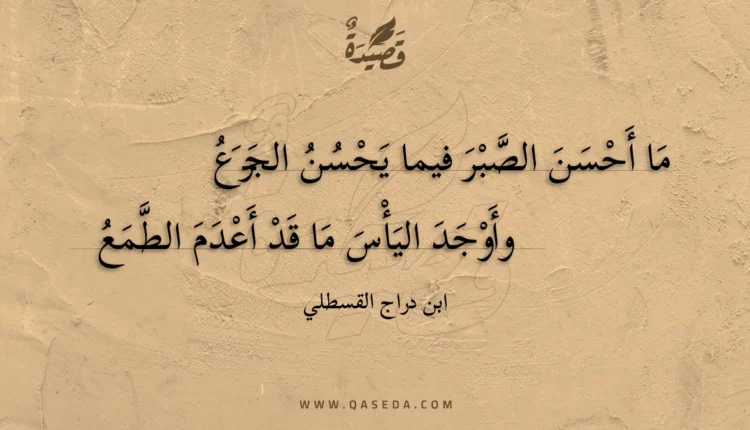 قَصِيْدَةٌ
مَا أَحْسَنَ الصَّبْرَ فيما يَحْسُنُ الجَوَعُ
وأَوْجَدَ اليَأْسَ مَا قَدْ أَعْدَمَ الطَّمَعُ
ابن دراج القسطلي
WWW.QASEDA.COM